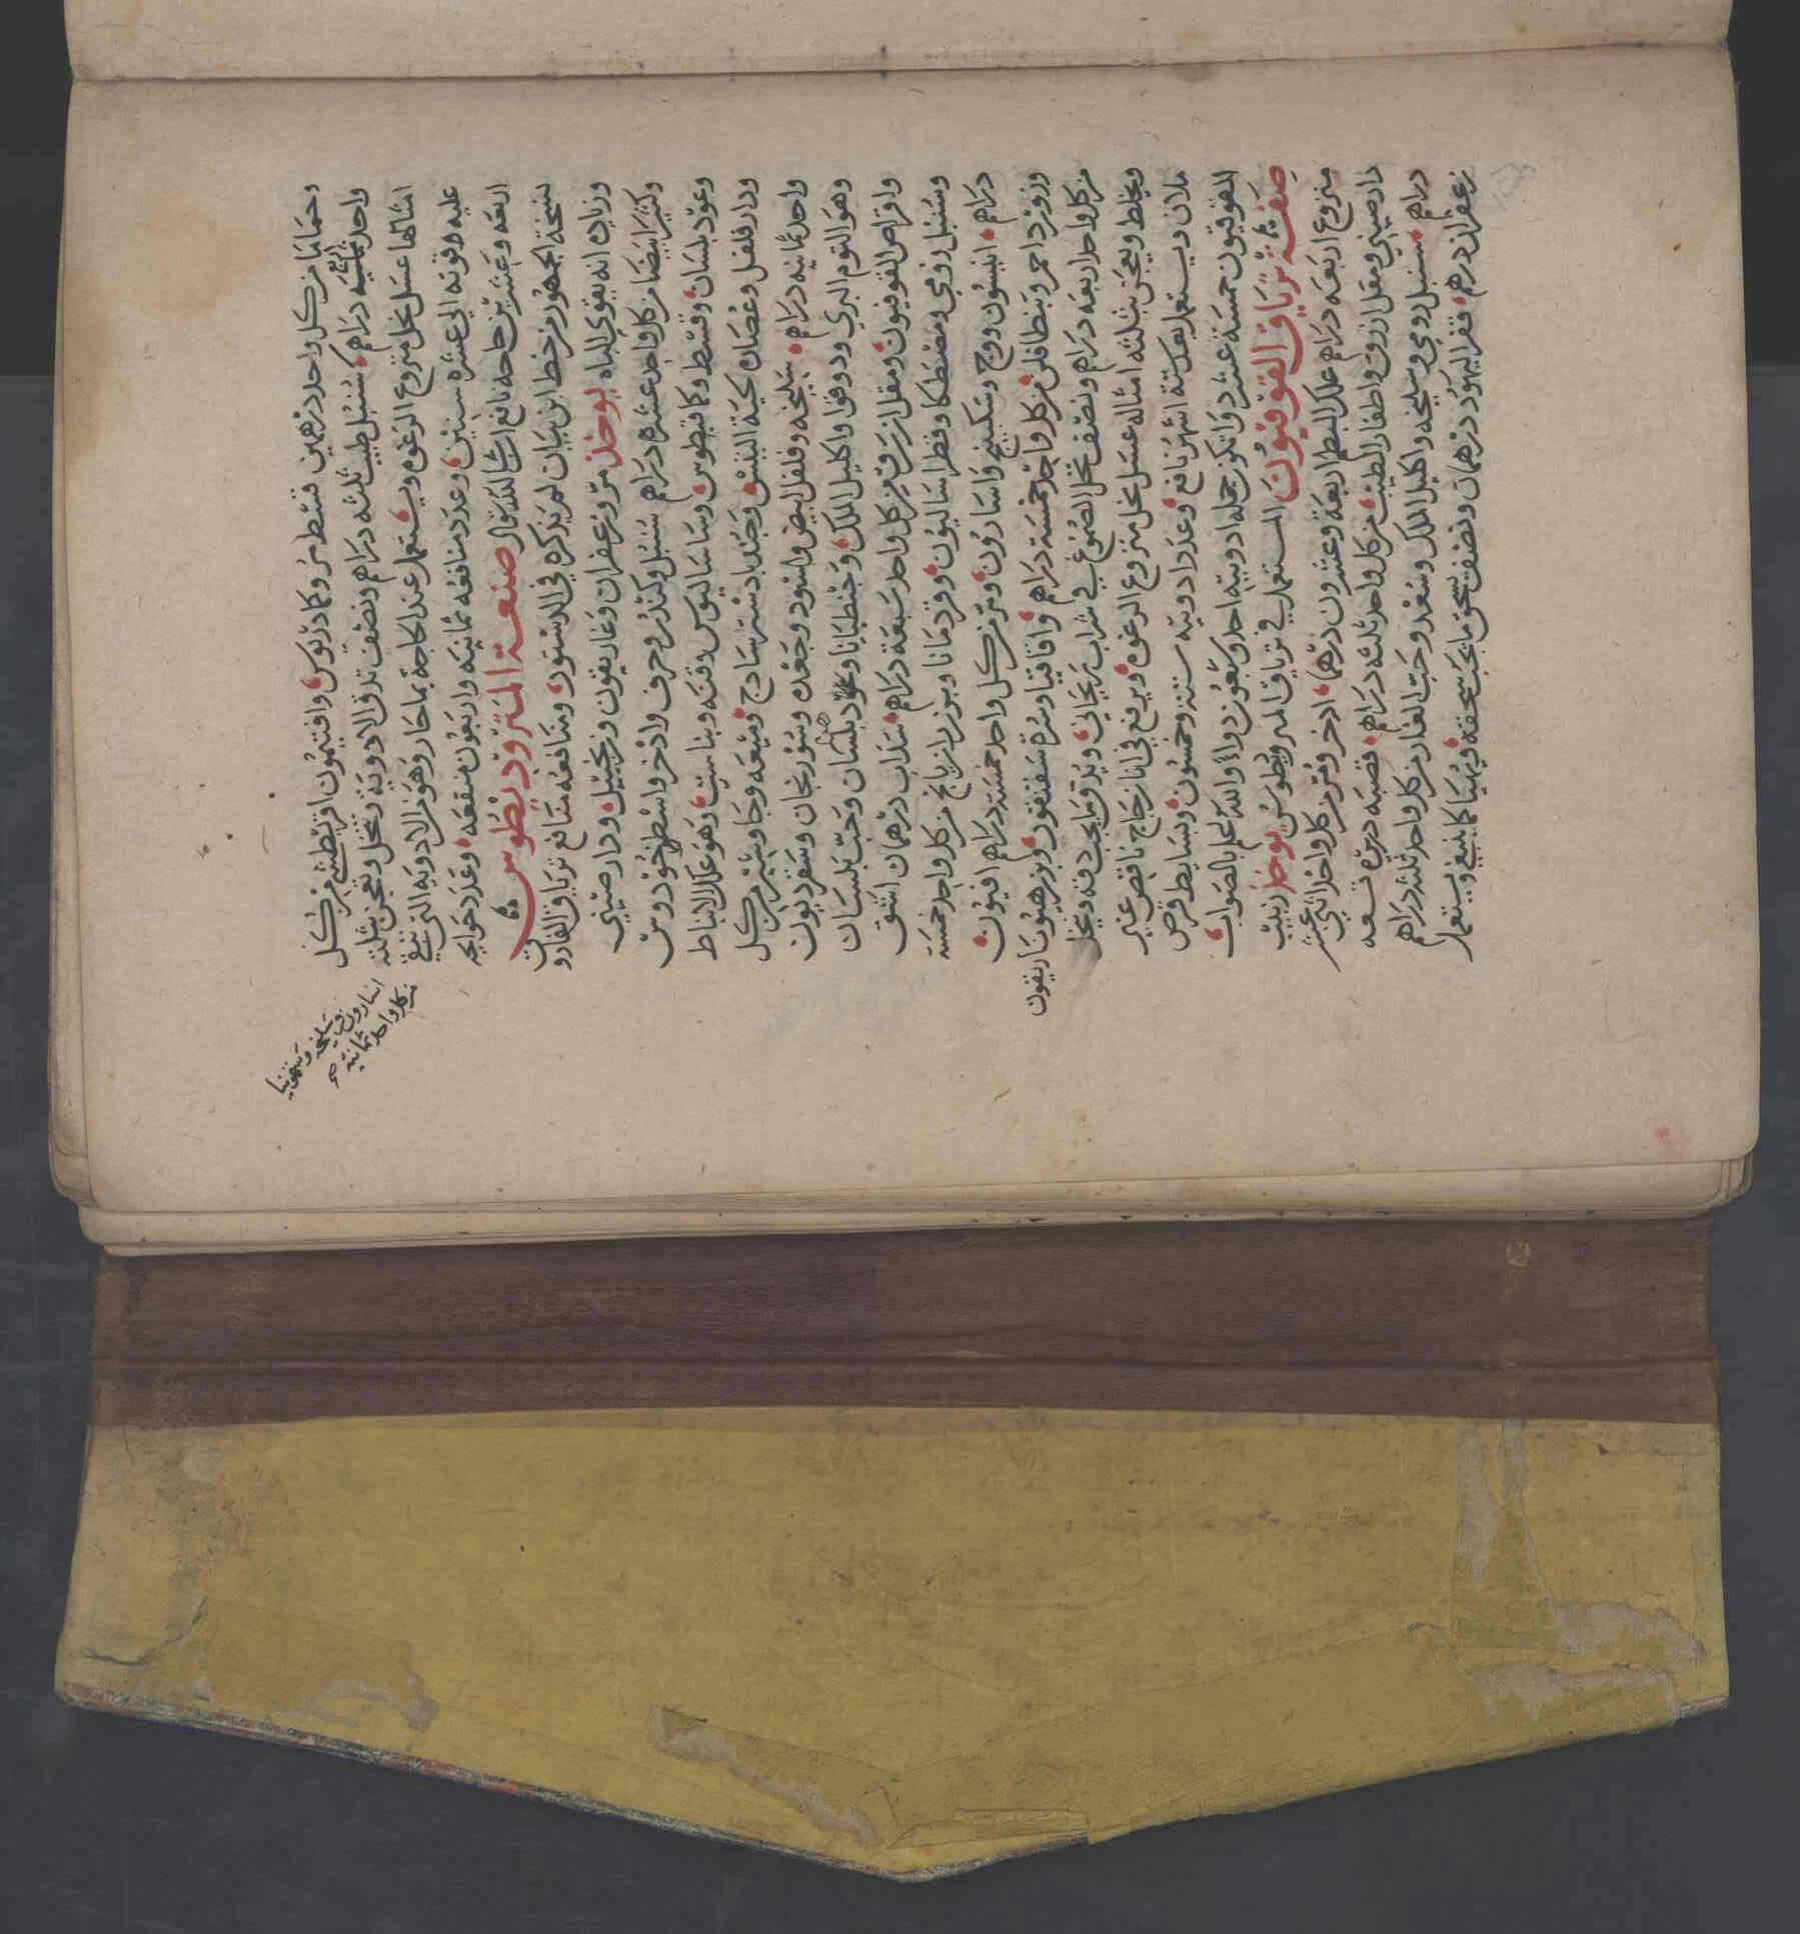 وحماما من كل واحد درهمين قسط مر وكمادريوس وافتيمون اقريطشي من كل
واحد ثمانيه دراهم سنبل طيب ثلثه دراهم ونصف تدق الادوية وتنخل وتعجن بثلثه
امثالها عسل نحل منزوع الرغوه ويستعمل عند الحاجة بما حار وهو من الادويه التي تبقي
عليه قوته الي عشره سنين وعدد منافعه ثمانيه واربعون منفعه وعدد حوايجه
اربعه وعشرين حاجه نافع ان شا الله تعالي صنعة المتروديطوس
نسخة الجمهور من خط ابن بيان لم يذكره في الدستور ومنافعه منافع ترياق الفاروق
وزياده انه يقوي الباه يوخذ مر وزعفران وغاريقون وزنجبيل ودارصيني
وكثيرا بيضا من كل واحد عشره دراهم سنبل وكندر وحرف واذخر واسطوخودوس
وعود بلسان وقسط وكمافيطوس وساساليوس وقنه وبناست وهو علك الانباط
ودار فلفل وعصاره لحية التيس وجندبادستر ساذج وميعه وجاوشير من كل
واحد ثمانيه دراهم سليخه وفلفل ابيض واسود وجعده وسورنجان وسقرديون
وهو الثوم البري ودوقوا واكليل الملك وجنطيانا وعود بلسان وحب بلسان
واقراص القوفيون ومقل ازرق من كل واحد سبعة دراهم سذاب درهمان اشق
وسنبل رومي ومصطكا وقطراساليون وقردمانا وبزر رازيانج من كل واحد خمسة
دراهم انيسون ووج وسكبينج واسارون ومر من كل واحد خمسة دراهم افيون
وزر ورد احمر وبنطافلن من كل واحد خمسة دراهم واقاقيا وسرة سقنقور وبزر هيوفاريقون
من كل واحد اربعه دراهم ونصف تحل الصموغ في شراب ريحاني ويدق ما يجب دقه وينخل
ويخلط ويعجن بثلثه امثاله عسل نحل منزوع الرغوه ويرفع في انا زجاج ناقص غير
ملان ويستعمل بعد ستة اشهر نافع وعدد ادويته ستة وخمسون وبسايط قرص
القوفيون خمسة عشر دوا تكون جمله ادويته احد وسبعون دواء والله اعلم بالصواب
صفة ترياق القوفيون المستعمل في ترياق المتروديطوس يوخذ زبيب
منزوع اربعه دراهم علك البطم اربعة وعشرون درهما اذخر ومر من كل واحد اثني عشر
دارصيني ومقل ازرق واظفار الطيب من كل واحد ثلثه دراهم قصبه دريره تسعه
دراهم سنبل رومي وسليخه واكليل الملك وسعد وحب الغار من كل واحد ثلثه دراهم
زعفران درهم قفر اليهود درهمان ونصف يسحق ما يجب سحقه ويهيا كما ينبغي ويستعمل
سليخه وسقمونيا
اسارون
من كل واحد ثمانيه صح